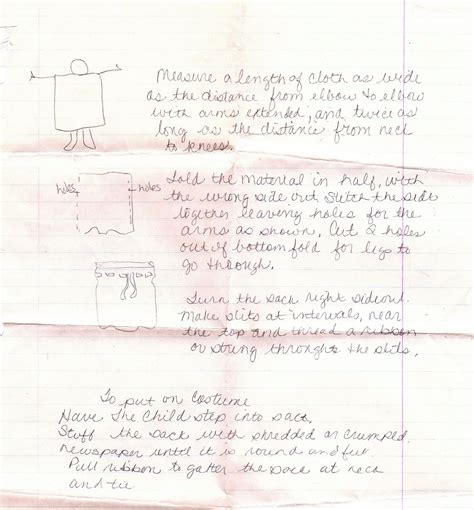 Measure a length of cloth as wide
as the distance from elbow to elbow
with arms extended, and twice as
long as the distance from neck
to knees.
holes holes
Fold the material in half, with
the wrong side out. Stitch the side
together leaving holes for the
arms as shown. Cut 2 holes
out of bottom fold for legs to
go through.
Turn the sack right sideout.
Make slits at intervals, near
the top and thread a ribbon
or string throught the slits.
To put on costume
Have the child step into sack,
Stuff the sack with shredded or crumped
newspaper until it is round and full.
Pull ribbon to gather the sack at neck
and tie